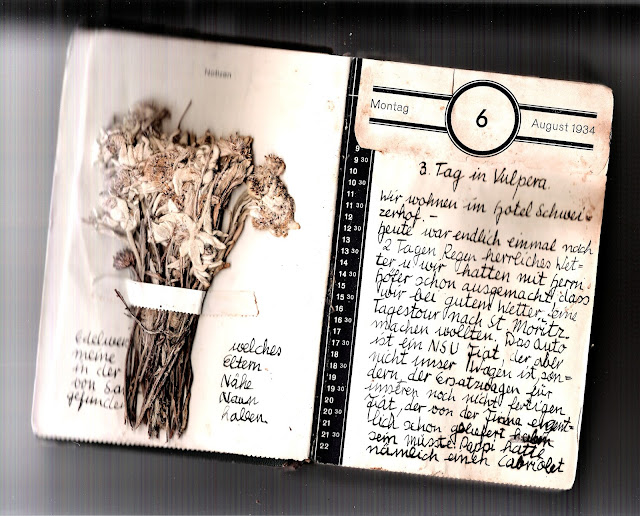 Notizen
Edelwei welches
meine Eltern
in der Nähe
von Sa Naun
gefunden haben
Montag 6 August 1934
9 30
10
11 30
12
13 30
14
15 30
16
17 30
18
19 30
20
21 30
22
3. Tag in Vulpera.
Wir wohnen im Hotel Schwei-
zerhof. –
Heute war endlich einmal nach
2 Tagen Regen herrliches Wet-
ter u. wir hatten mit Herrn
Höfer schon ausgemacht, dass
wir bei gutem Wetter eine
Tagestour nach St. Moritz
machen wollten. Das Auto
ist ein NSU Fiat, der aber
nicht unser Wagen ist, son-
dern, der Ersatzwagen für
unseren noch nicht fertigen
Fiat, der von der Firma eigent-
lich schon geliefert
sein müsste. Pappi hatte
nämlich einen Cabriolet